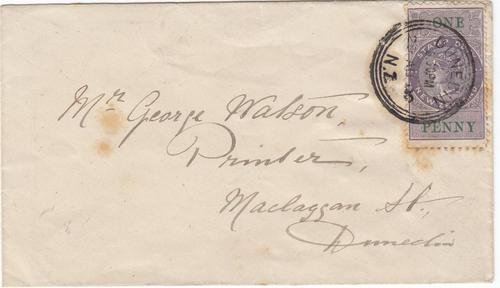 ONE
PENNY
N.Z
Mr George Watson,
Printer,
Maclaggan St.,
Dunedin